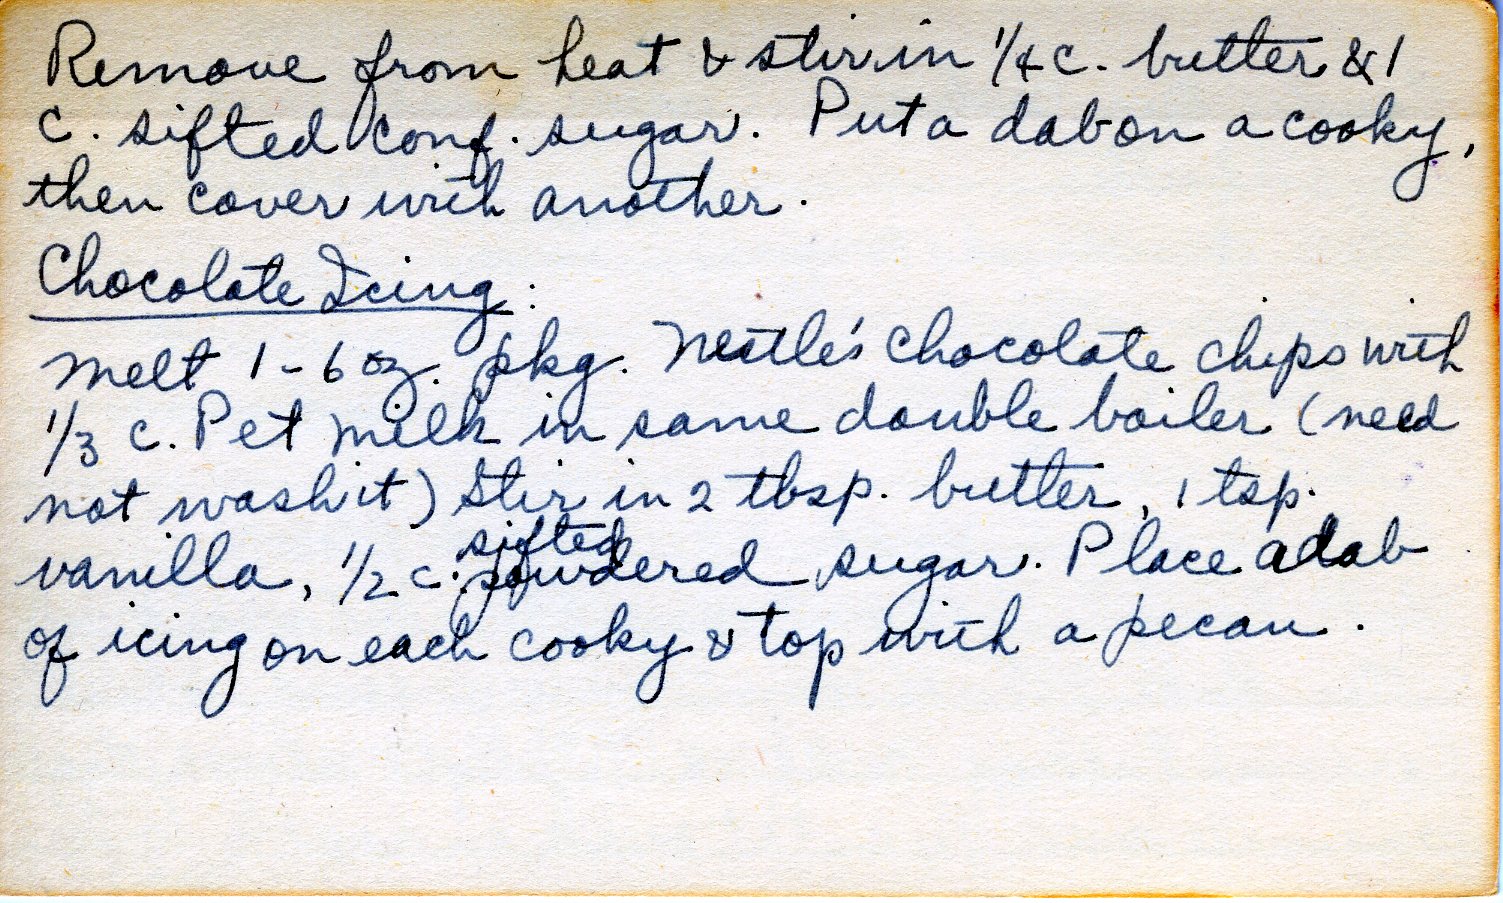 Remove from heat & stir in 1/4 c. butter & 1
c. sifted conf. sugar. Put a dab on a cooky,
then cover with another.
Chocolate Icing:
Melt 1 - 6 oz. pkg. Nestle's chocolate chips with
1/3 c. Pet Milk in same double boiler (need
not wash it) Stir in 2 tbsp. butter, 1 tsp.
sifted
vanilla, 1/2 c. powdered sugar. Place a dab
of icing on each cooky & top with a pecan.